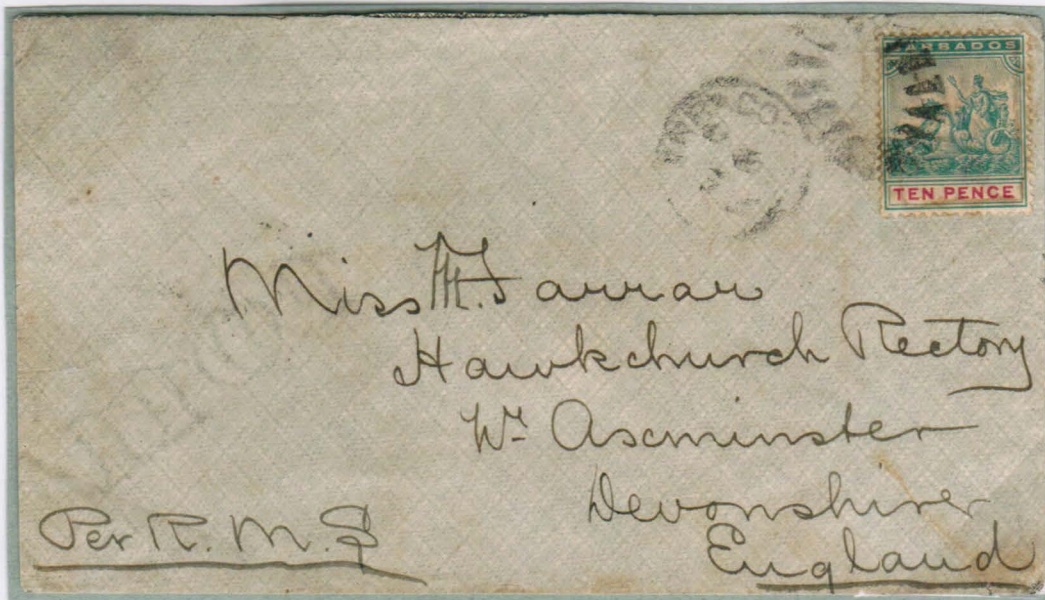 BARBADOS
TEN PENCE
Miss M. Farrar
Hawkchurch Rectory
Nr Axminster
Devonshire
England
Per R. M. S